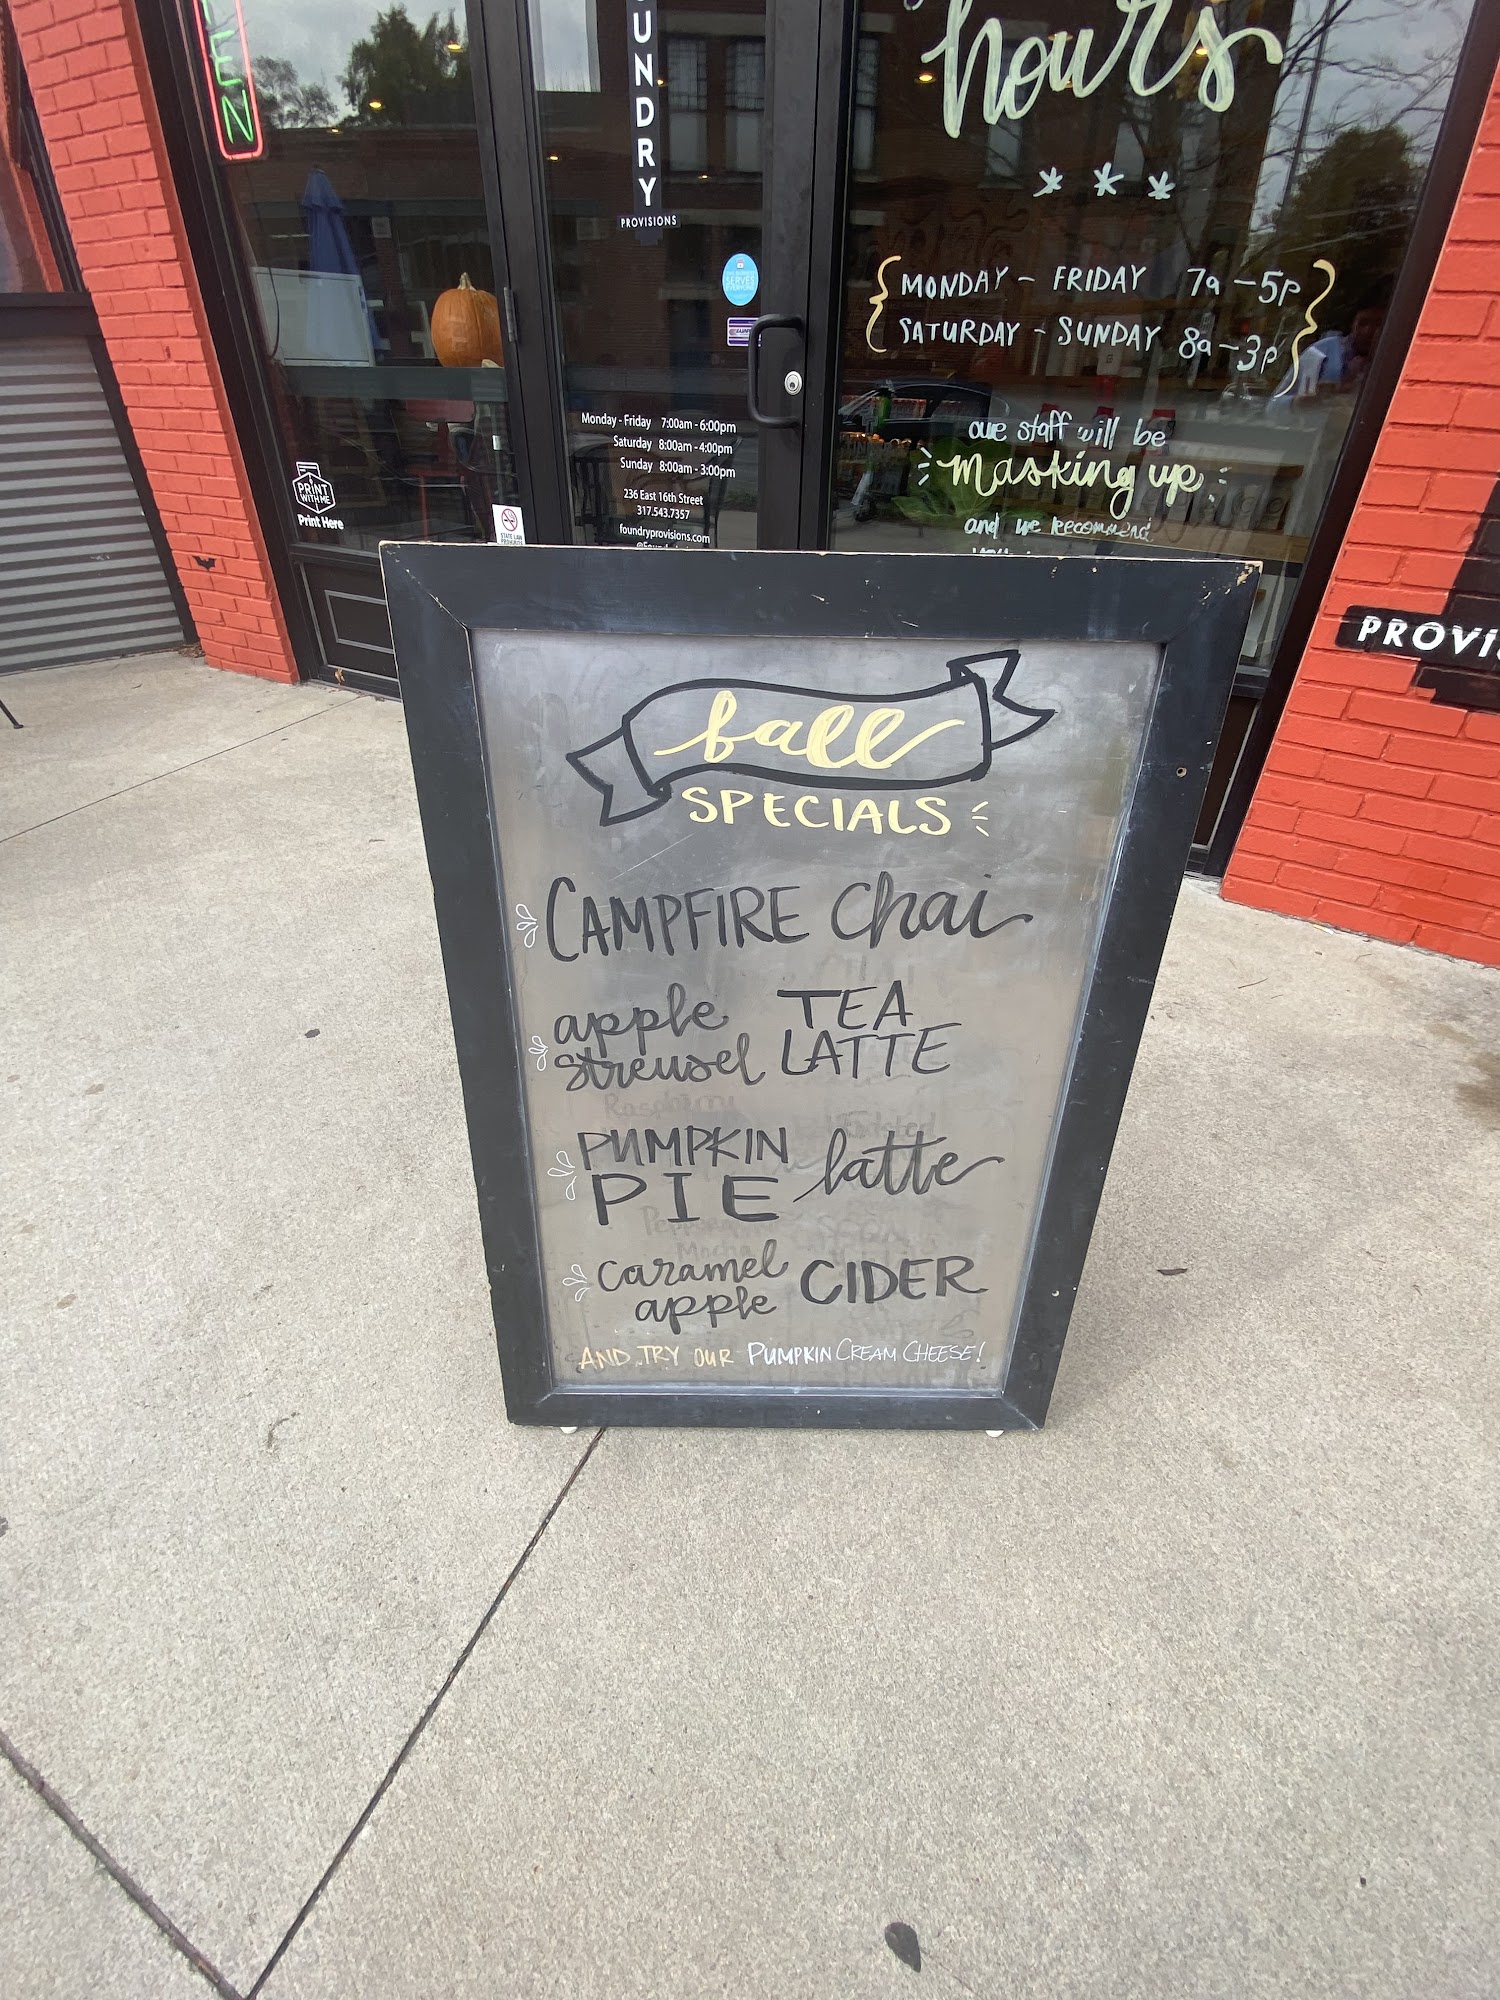 EN
UNDRY
PROVISIONS
hours
* * *
MONDAY - FRIDAY 7a - 5p
SATURDAY - SUNDAY 8a - 3p
our staff will be
masking up
and we recommend
Monday - Friday 7:00am - 6:00pm
Saturday 8:00am - 4:00pm
Sunday 8:00am - 3:00pm
236 East 16th Street
317.543.7357
foundryprovisions.com
PRINT
WITH ME
Print Here
STATE LAW
SERVES
PROVI
fall
SPECIALS
CAMPFIRE chai
apple streusel TEA LATTE
PUMPKIN PIE latte
caramel apple CIDER
AND TRY OUR PUMPKIN CREAM CHEESE!